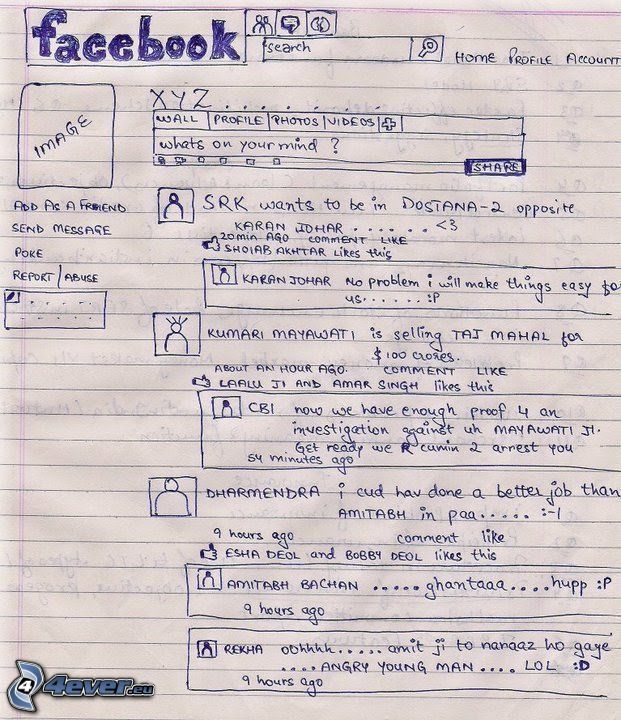 facebook
search
HOME PROFILE ACCOUNT
IMAGE
XYZ . . . . . . . .
WALL PROFILE PHOTOS VIDEOS
whats on your mind ?
SHARE
ADD AS A FRIEND
SEND MESSAGE
POKE
REPORT/ABUSE
SRK wants to be in DOSTANA-2 opposite
KARAN JOHAR . . . . . . <3
20 min AGO COMMENT LIKE
SHOIAB AKHTAR likes this
KARAN JOHAR No problem i will make things easy for
us . . . . . . :P
KUMARI MAYAWATI is selling TAJ MAHAL for
$ 100 crores.
ABOUT AN HOUR AGO. COMMENT LIKE
LAALU JI AND AMAR SINGH likes this
CBI now we have enough proof 4 an
investigation against uh MAYAWATI JI.
Get ready we R cumin 2 arrest you
54 minutes ago
DHARMENDRA i cud hav done a better job than
AMITABH in paa . . . . . :-|
9 hours ago comment like
ESHA DEOL and BOBBY DEOL likes this
AMITABH BACHAN . . . . . ghantaaa . . . . hupp :P
9 hours ago
REKHA oohhhh . . . . . amit ji to naraaz ho gaye
. . . . ANGRY YOUNG MAN . . . . LOL :D
9 hours ago
4ever.eu